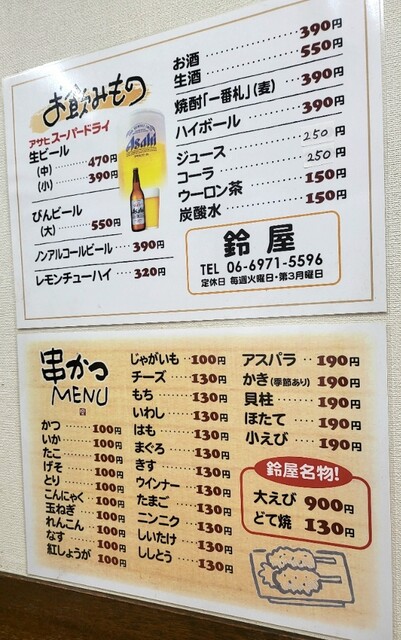 お飲みもの
アサヒスーパードライ
生ビール
(中) 470円
(小) 390円
びんビール
(大) 550円
ノンアルコールビール 390円
レモンチューハイ 320円
Asahi
お酒 390円
生酒 550円
焼酎「一番札」(麦) 390円
ハイボール 390円
ジュース 250円
コーラ 250円
ウーロン茶 150円
炭酸水 150円
鈴屋
TEL 06-6971-5596
定休日 毎週火曜日・第3月曜日
串かつ
MENU
かつ 100円
いか 100円
たこ 100円
げそ 100円
とり 100円
こんにゃく 100円
玉ねぎ 100円
れんこん 100円
なす 100円
紅しょうが 100円
じゃがいも 100円
チーズ 130円
もち 130円
いわし 130円
はも 130円
まぐろ 130円
きす 130円
ウインナー 130円
たまご 130円
ニンニク 130円
しいたけ 130円
ししとう 130円
アスパラ 190円
かき(季節あり) 190円
貝柱 190円
ほたて 190円
小えび 190円
鈴屋名物!
大えび 900円
どて焼 130円